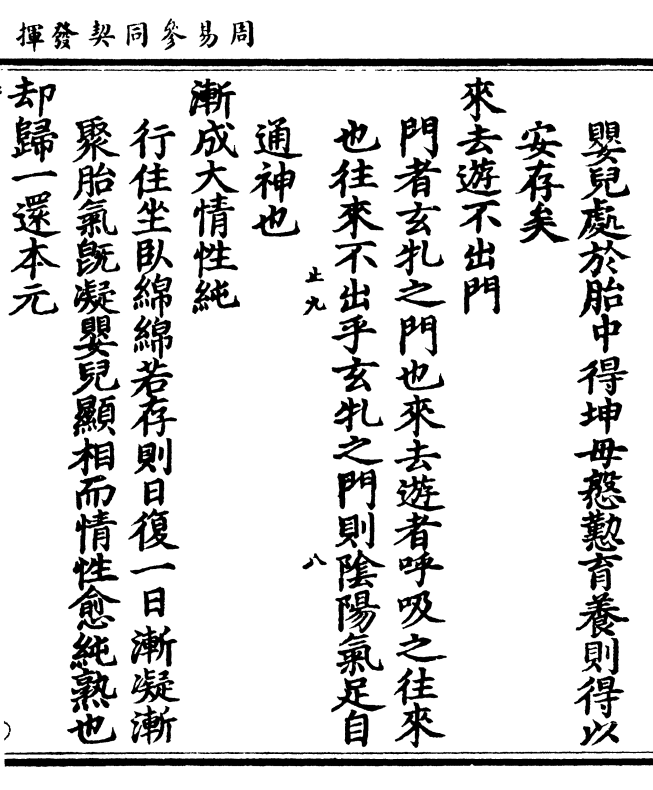 周易參同契發揮
嬰兒處於胎中得坤母慇懃育養則得以
安存矣
來去遊不出門
門者玄牝之門也來去遊者呼吸之往來
也往來不出乎玄牝之門則陰陽氣足自
通神也
止九
八
漸成大情性純
行住坐臥綿綿若存則日復一日漸凝漸
聚胎氣既凝嬰兒顯相而情性愈純熟也
却歸一還本元